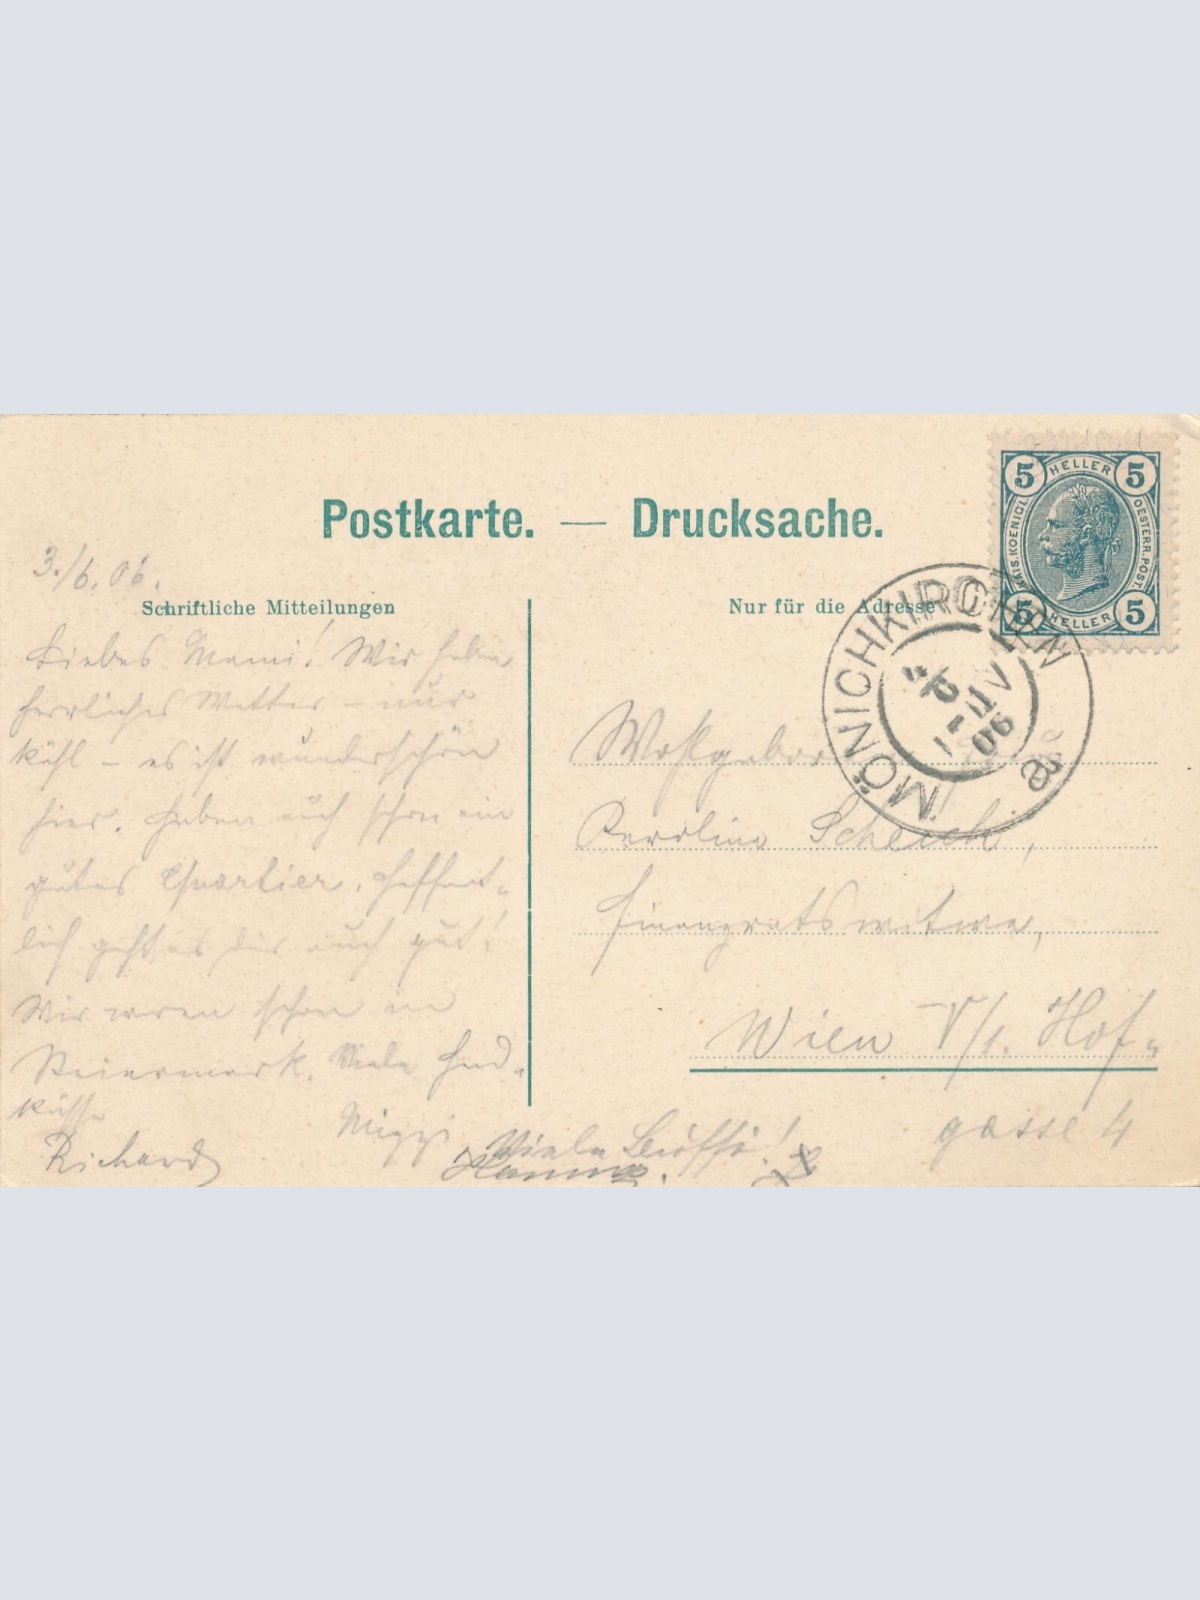 Postkarte. — Drucksache.
3./6. 06.
Schriftliche Mitteilungen
Liebes Mami! Wir haben
herrliches Wetter – nur
kühl – es ist wunderschön
hier. Haben auch schon ein
gutes Quartier. Hoffent-
lich geht es dir auch gut!
Wir waren schon in
Steiermark. Viele Hand-
küsse
Richard
Mizzi
Viele
Nur für die Adresse
Wohlgeboren
Karoline
Finanzratswitwe,
Wien V/1. Hof-
gasse 4
5 HELLER 5
KAIS. KOENIGL. OESTERR. POST.
5 HELLER 5
MÖNICHKIRCHEN
06